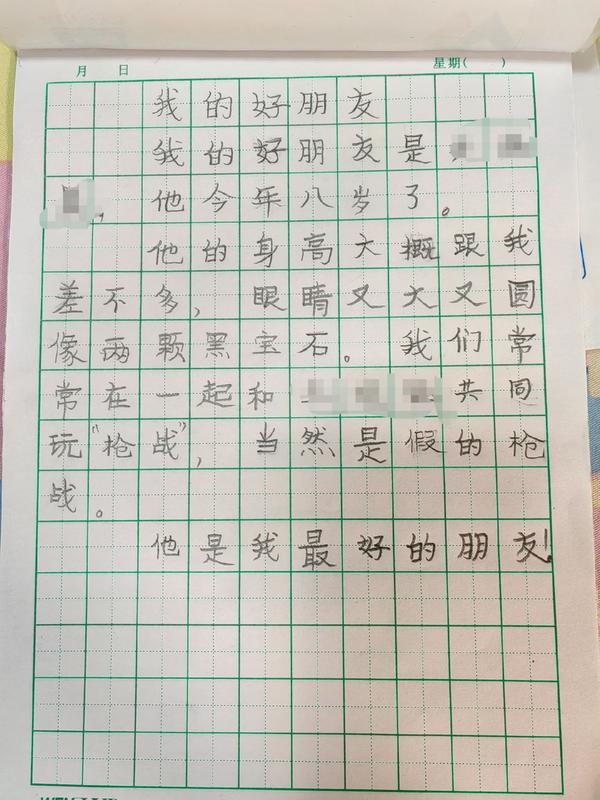 月 日 星期( )
我的好朋友
我的好朋友是
，他今年八岁了。
他的身高大概跟我
差不多，眼睛又大又圆
像两颗黑宝石。我们常
常在一起和 共同
玩“枪战”，当然是假的枪
战。
他是我最好的朋友!